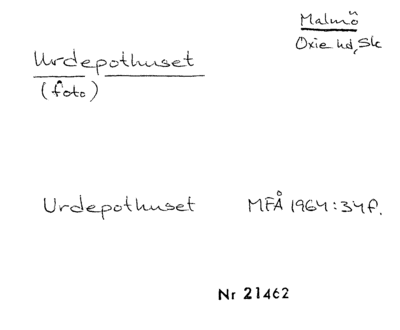 Malmö
Oxie hd, Sk
Urdepothuset
(foto)
Urdepothuset MFÅ 1964:34f.
Nr 21462